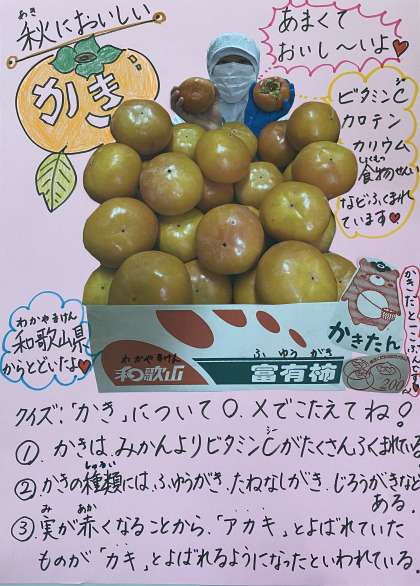 あき
秋においしい
かき
あまくて
おいし〜いよ
ビタミンC
シー
カロテン
カリウム
しょくもつ
食物せんい
などふくまれ
ています
わかやまけん
和歌山県
からとどいたよ
かきたん
わかやまけん
和歌山
ふゆうがき
富有柿
200
クイズ!「かき」について○、×でこたえてね!
①かきは、みかんよりビタミンCがたくさんふくまれている
シー
②かきの種類には、ふゆうがき、たねなしがき、じろうがきなど
しゅるい
ある。
③実が赤くなることから、「アカキ」とよばれていた
み あか
ものが「カキ」とよばれるようになったといわれている。